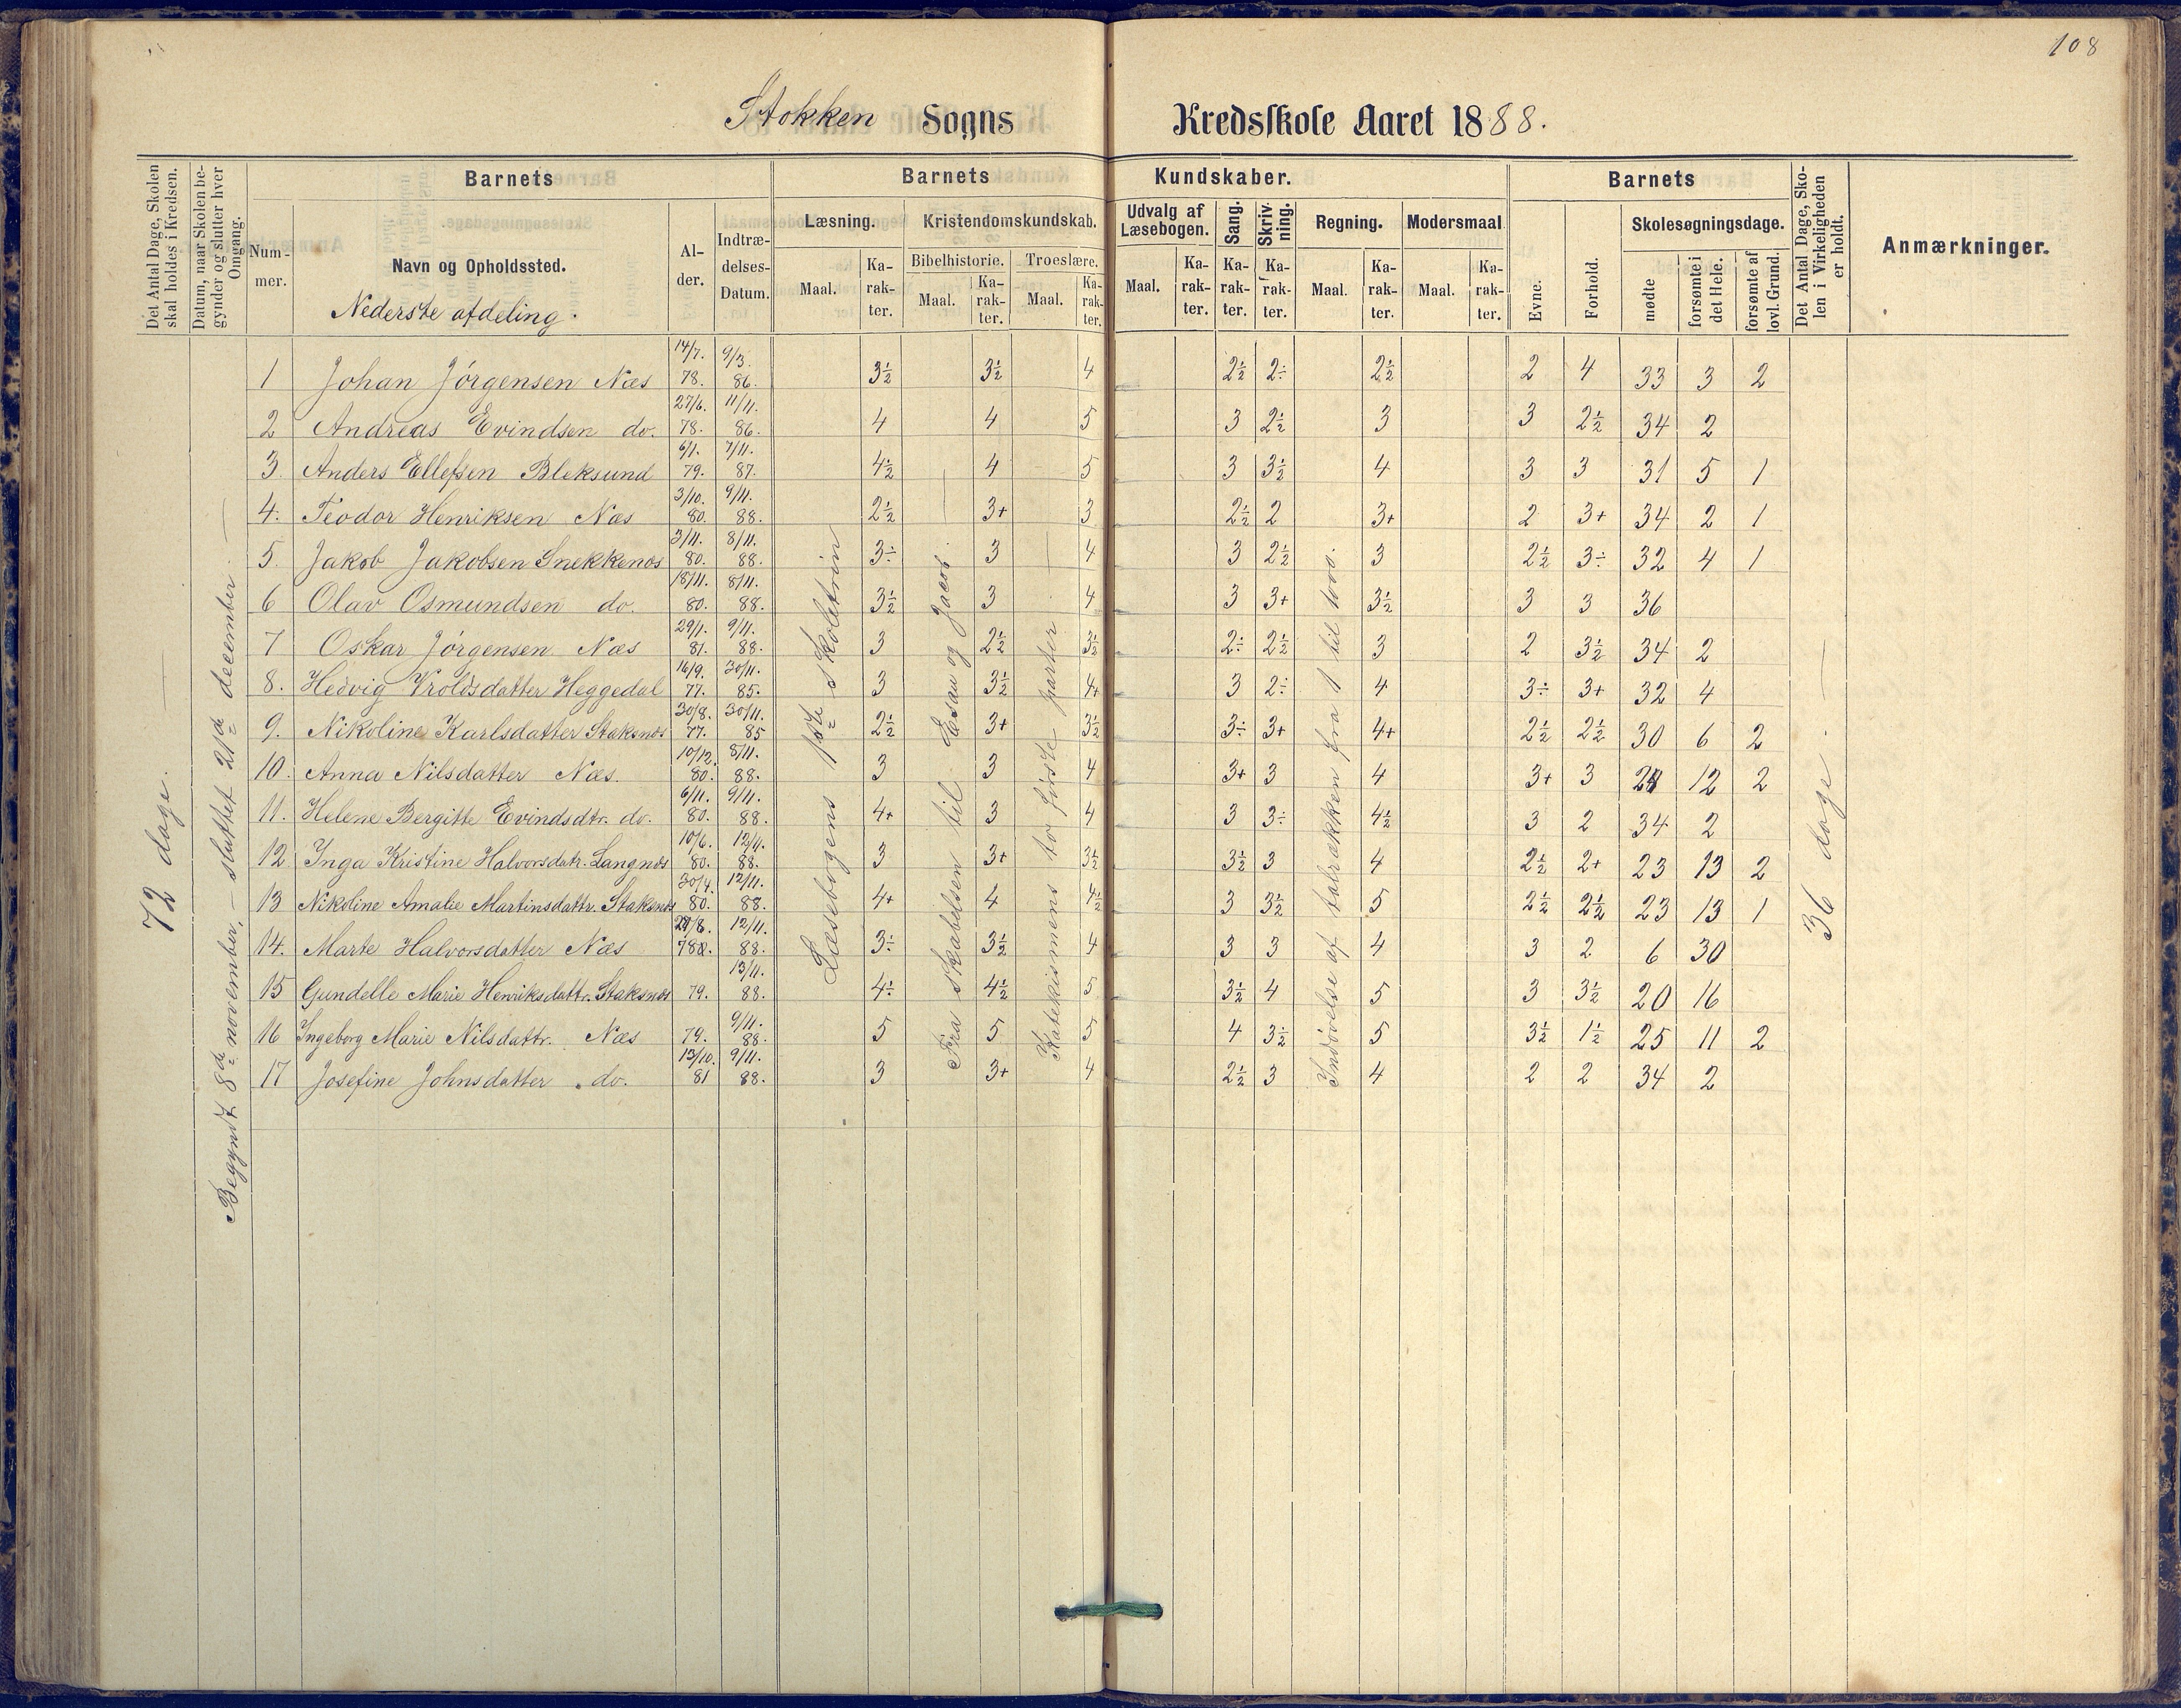 108
Stokken Sogns Kredsskole Aaret 1888.
Det Antal Dage, Skolen skal holdes i Kredsen.
Datum, naar Skolen begynder og slutter hver Omgang.
Barnets
Nummer.
Navn og Opholdssted.
Nederste afdeling.
Alder.
Indtrædelses-Datum.
Barnets Kundskaber.
Læsning.
Maal. Karakter.
Kristendomskundskab.
Bibelhistorie. Troeslære.
Maal. Karakter. Maal. Karakter.
Udvalg af Læsebogen.
Maal. Karakter.
Sang. Karakter.
Skrivning. Karakter.
Regning.
Maal. Karakter.
Modersmaal
Maal. Karakter.
Barnets
Evne. Forhold.
Skolesøgningsdage.
mødte forsømte i det Hele. forsømte af lovl. Grund.
Det Antal Dage, Skolen i Virkeligheden er holdt.
Anmærkninger.
72 dage. —
Begyndt 8de november, — sluttet 21de december. —
Læsebogens 1ste skoletrin
Fra skabelsen til Esau og Jacob.
Katekismens to første parter
Indøvelse af talrækken fra 1 til 1000.
36 dage. —
1 Johan Jørgensen Næs 14/7. 78. 9/3. 86. 3½ 3½ 4 2½ 2÷ 2½ 2 4 33 3 2
2 Andreas Evindsen do. 27/6. 78. 11/11. 86. 4 4 5 3 2½ 3 3 2½ 34 2
3. Anders Ellefsen Bleksund 6/1. 79. 7/11. 87. 4½ 4 5 3 3½ 4 3 3 31 5 1
4. Teodor Henriksen Næs 3/10. 80. 9/11. 88. 2½ 3+ 3 2½ 2 3+ 2 3+ 34 2 1
5. Jakob Jakobsen Snekkenæs 3/11. 80. 8/11. 88. 3÷ 3 4 3 2½ 3 2½ 3÷ 32 4 1
6 Olav Osmundsen do. 18/11. 80. 8/11. 88. 3½ 3 4 3 3+ 3½ 3 3 36
7 Oskar Jørgensen Næs 29/1. 81. 9/11. 88. 3 2½ 3½ 2÷ 2½ 3 2 3½ 34 2
8. Hedvig Vroldsdatter Heggedal 16/9. 77. 30/11. 85. 3 3½ 4+ 3 2÷ 4 3÷ 3+ 32 4
9. Nikoline Karlsdatter Staksnæs 30/8. 77. 30/11. 85 2½ 3+ 3½ 3÷ 3+ 4+ 2½ 2½ 30 6 2
10. Anna Nilsdatter Næs. 10/12. 80. 8/11. 88. 3 3 4 3+ 3 4 3+ 3 24 12 2
11. Helene Bergitte Evindsdtr. do. 6/11. 80. 9/11. 88. 4+ 3 4 3 3÷ 4½ 3 2 34 2
12 Inga Kristine Halvorsdatr. Langnæs 10/6. 80. 12/11. 88. 3 3+ 3½ 3½ 3 4 2½ 2+ 23 13 2
13 Nikoline Amalie Martinsdattr. Staksnæs 30/4. 80. 12/11. 88. 4+ 4 4½ 3 3½ 5 2½ 2½ 23 13 1
14. Marte Halvorsdatter Næs 12/11. 88. 3÷ 3½ 4 3 3 4 3 2 6 30
15 Gundelle Marie Henriksdattr. Staksnæs 79. 13/11. 88. 4÷ 4½ 5 3½ 4 5 3 3½ 20 16
16 Ingeborg Marie Nilsdattr. Næs 79. 9/11. 88. 5 5 5 4 3½ 5 3½ 1½ 25 11 2
17 Josefine Johnsdatter do. 13/10. 81 9/11. 88. 3 3+ 4 2½ 3 4 2 2 34 2